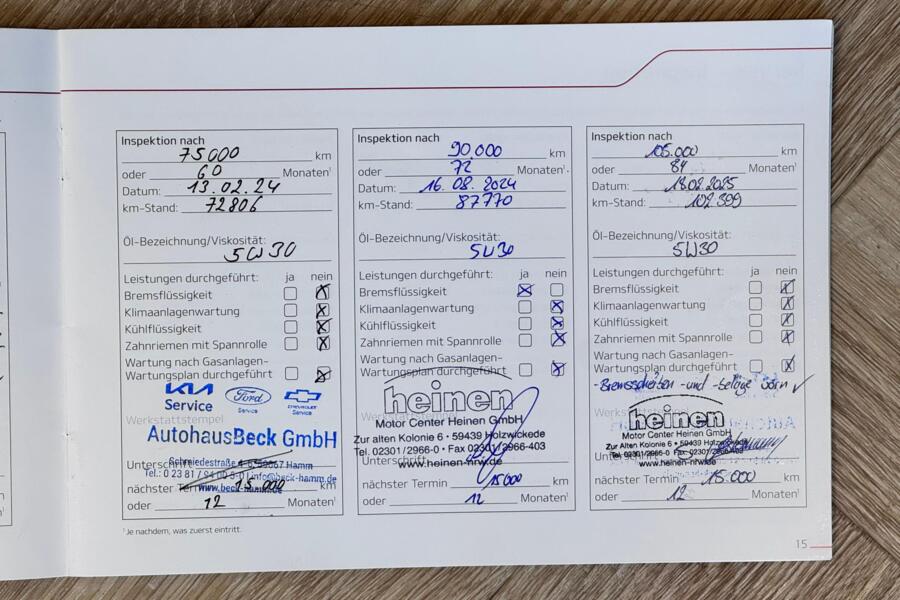 Inspektion nach
75000 km
oder 60 Monaten¹
Datum: 13.02.24
km-Stand: 72806
Öl-Bezeichnung/Viskosität:
5W30
Leistungen durchgeführt: ja nein
Bremsflüssigkeit
Klimaanlagenwartung
Kühlflüssigkeit
Zahnriemen mit Spannrolle
Wartung nach Gasanlagen-
Wartungsplan durchgeführt
KIA Ford CHEVROLET
Service Service Service
Werkstattstempel
AutohausBeck GmbH
Schmiedestraße 59067 Hamm
Unterschrift
Tel.: 0 23 81 / info@beck-hamm.de
www.beck-hamm.de
nächster Termin 15.000 km
oder 12 Monaten¹
¹ Je nachdem, was zuerst eintritt.
Inspektion nach
90.000 km
oder 72 Monaten¹
Datum: 16.08.2024
km-Stand: 87770
Öl-Bezeichnung/Viskosität:
5W30
Leistungen durchgeführt: ja nein
Bremsflüssigkeit
Klimaanlagenwartung
Kühlflüssigkeit
Zahnriemen mit Spannrolle
Wartung nach Gasanlagen-
Wartungsplan durchgeführt
heinen
Werkstattstempel
Motor Center Heinen GmbH
Zur alten Kolonie 6 • 59439 Holzwickede
Tel. 02301/2966-0 • Fax 02301/2966-403
Unterschrift
www.heinen-nrw.de
nächster Termin 15000 km
oder 12 Monaten¹
Inspektion nach
105.000 km
oder 84 Monaten¹
Datum: 18.02.2025
km-Stand: 102.399
Öl-Bezeichnung/Viskosität:
5W30
Leistungen durchgeführt: ja nein
Bremsflüssigkeit
Klimaanlagenwartung
Kühlflüssigkeit
Zahnriemen mit Spannrolle
Wartung nach Gasanlagen-
Wartungsplan durchgeführt
-Bremsscheiben -und -beläge vorn ✓
heinen
Motor Center Heinen GmbH
Zur alten Kolonie 6 • 59439 Holzwickede
Tel. 02301/2966-0 • Fax 02301/2966-403
Unterschrift
www.heinen-nrw.de
nächster Termin 15.000 km
oder 12 Monaten¹
15